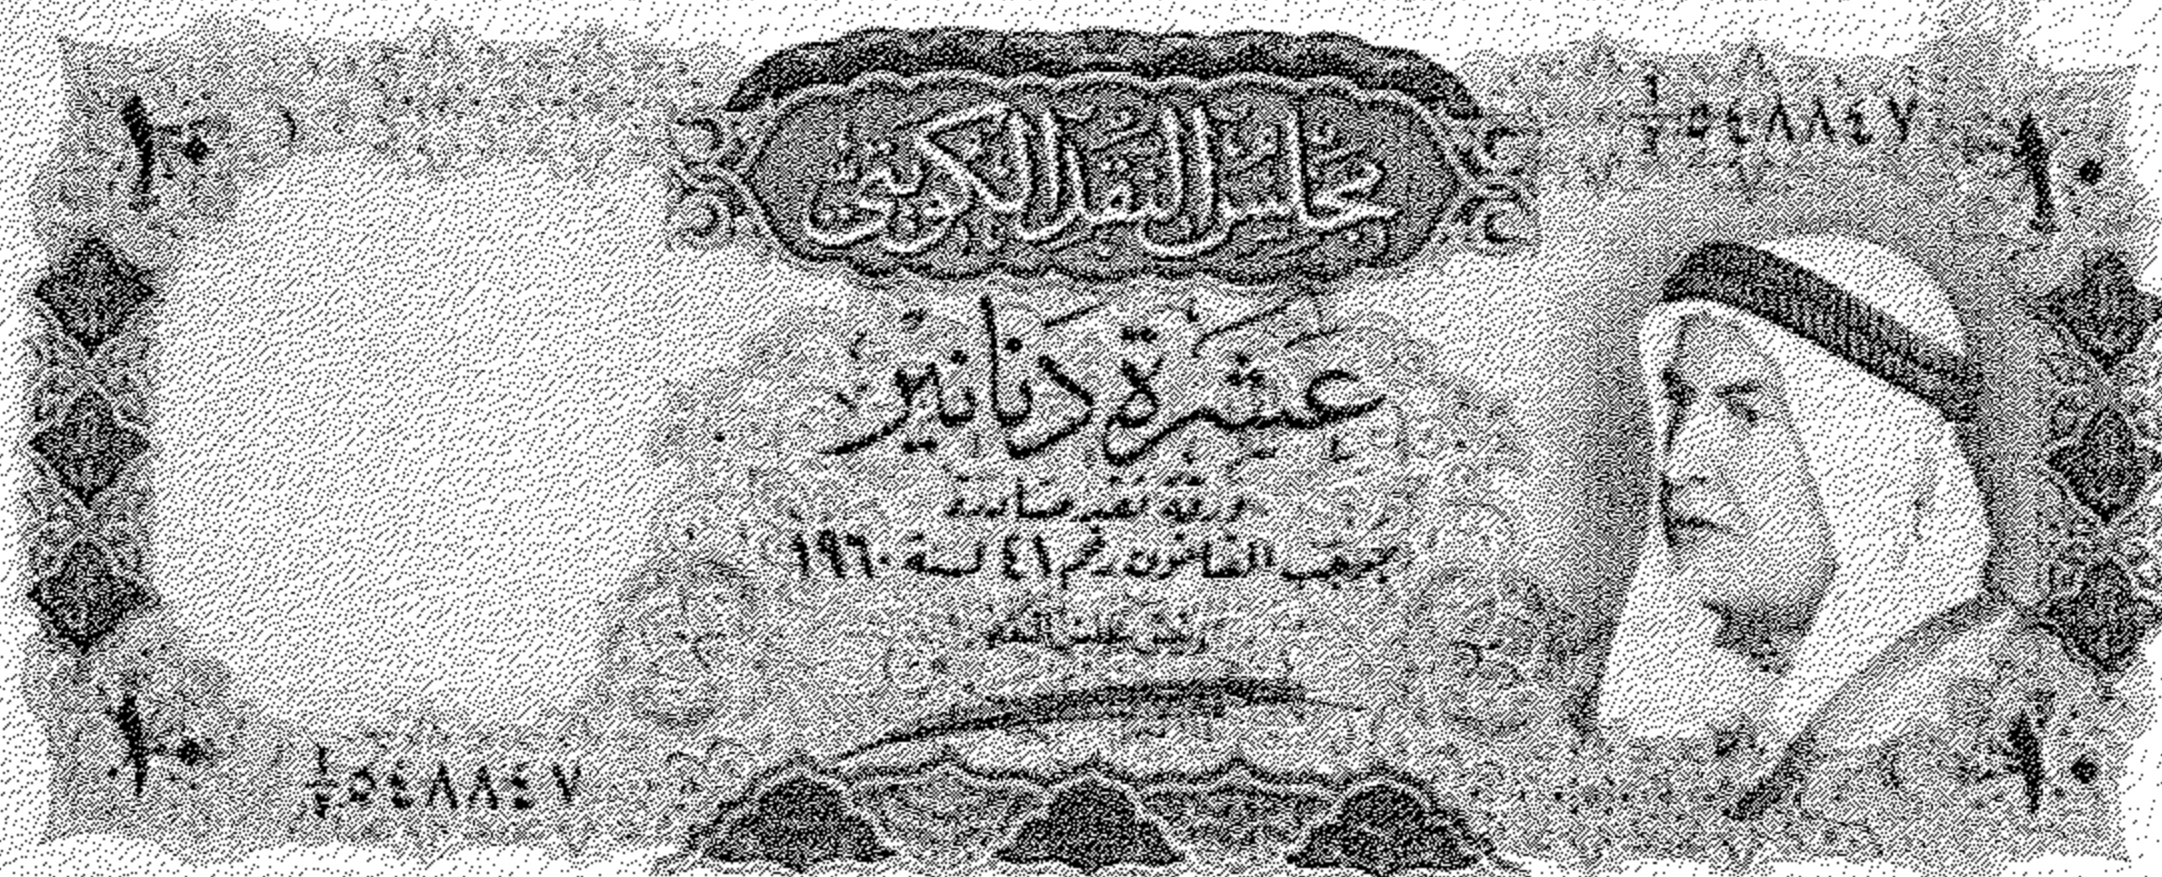 ١٠
١/١ ٥٤٨٨٤٧
١٠
مجلس النقد الكويتي
عشرة دنانير
ورقة نقد صادرة
بموجب القانون رقم ٤١ لسنة ١٩٦٠
رئيس مجلس النقد
١٠
١/١ ٥٤٨٨٤٧
١٠